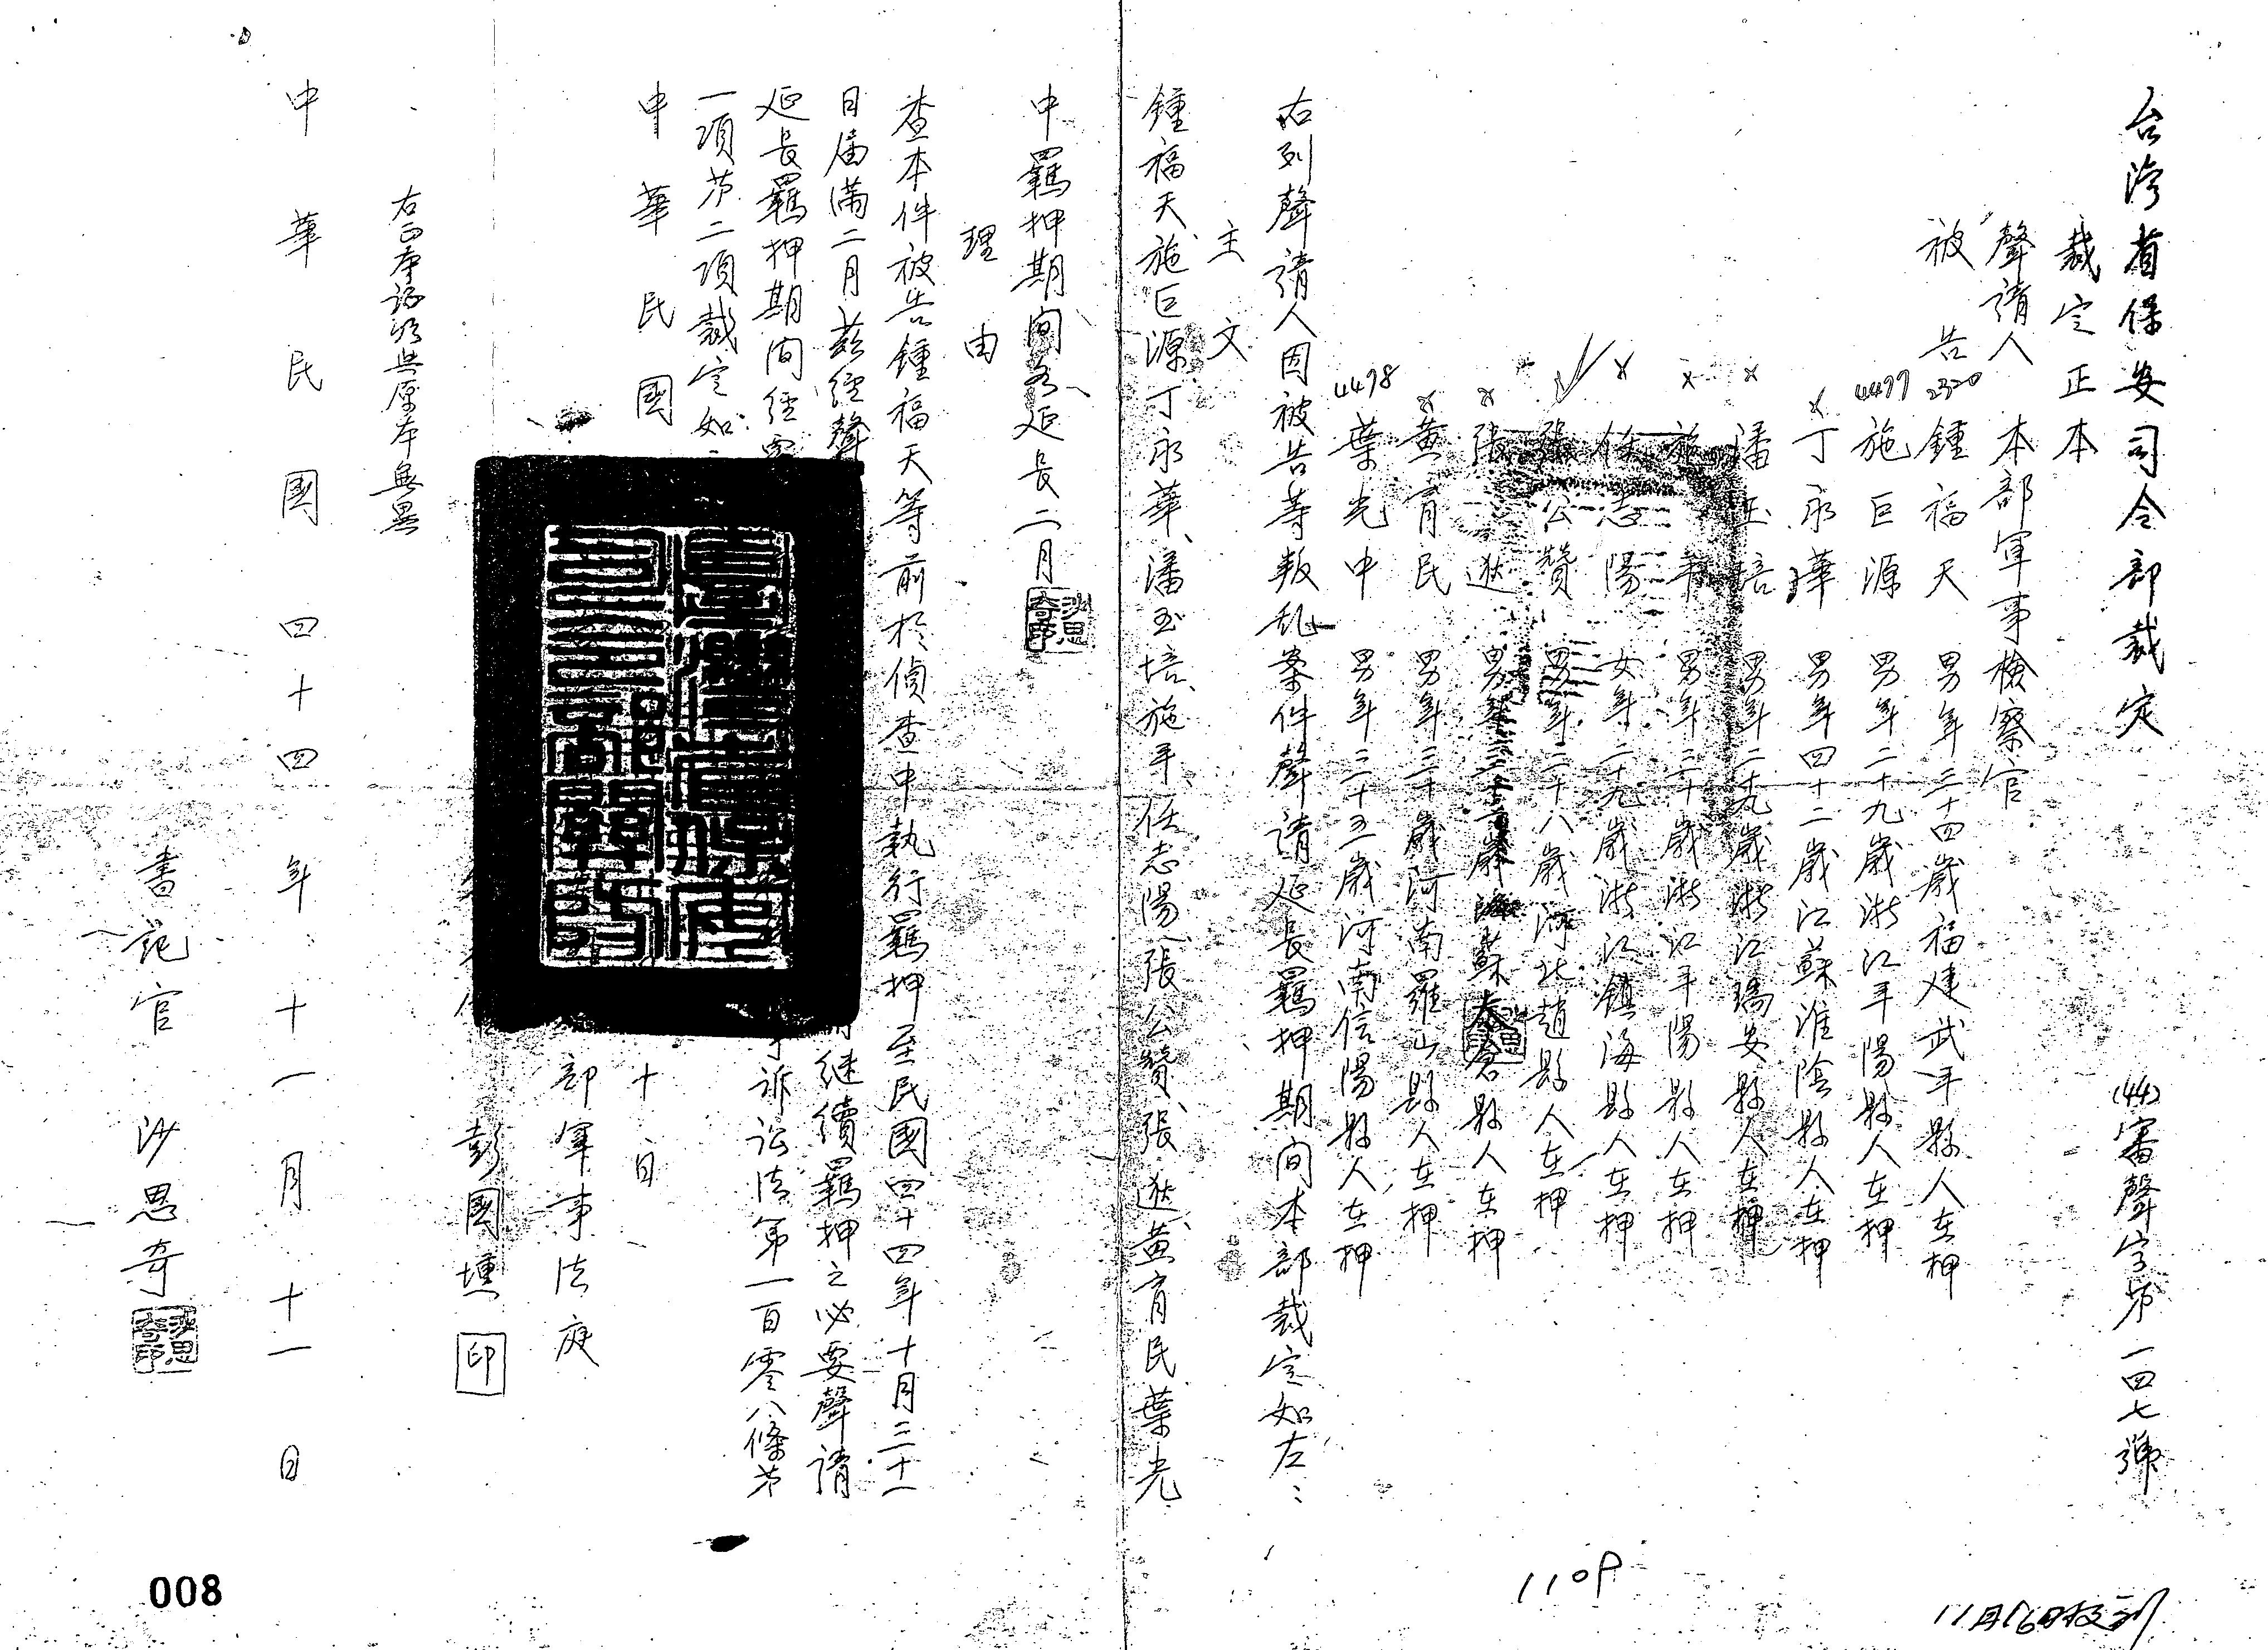 台湾省保安司令部裁定 (44)審聲字第一四七號
裁定正本
聲請人 本部軍事檢察官
被告 2320 鍾福天 男年三十四歲福建武平縣人在押
4477 施巨源 男年二十九歲浙江平陽縣人在押
x 丁永華 男年四十二歲江蘇淮陰縣人在押
x 潘玉培 男年二十九歲浙江瑞安縣人在押
x 施平 男年三十歲浙江平陽縣人在押
x 任志陽 女年二十九歲浙江鎮海縣人在押
張公贊 男年二十八歲河北趙縣人在押
x 張逖 男年三十一歲江蘇太倉縣人在押
x 黃育民 男年三十歲河南羅山縣人在押
4478 葉光中 男年三十五歲河南信陽縣人在押
右列聲請人因被告等叛乱案件聲請延長羈押期间本部裁定如左：
主文
鍾福天、施巨源、丁永華、潘玉培、施平、任志陽、張公贊、張逖、黃育民、葉光
中羈押期间各延長二月
理由
查本件被告鍾福天等前於偵查中執行羈押至民國四十四年十月三十一
日届滿二月茲經聲 継續羈押之必要聲請
延長羈押期间經 訴訟法第一百零八條第
一項第二項裁定如
中華民國 十日
部軍事法庭
彭國壎 印
右正本証明與原本無異
中華民國四十四年十一月十一日
書記官 沙思奇
沙思奇印
110P
11月16日收到
008